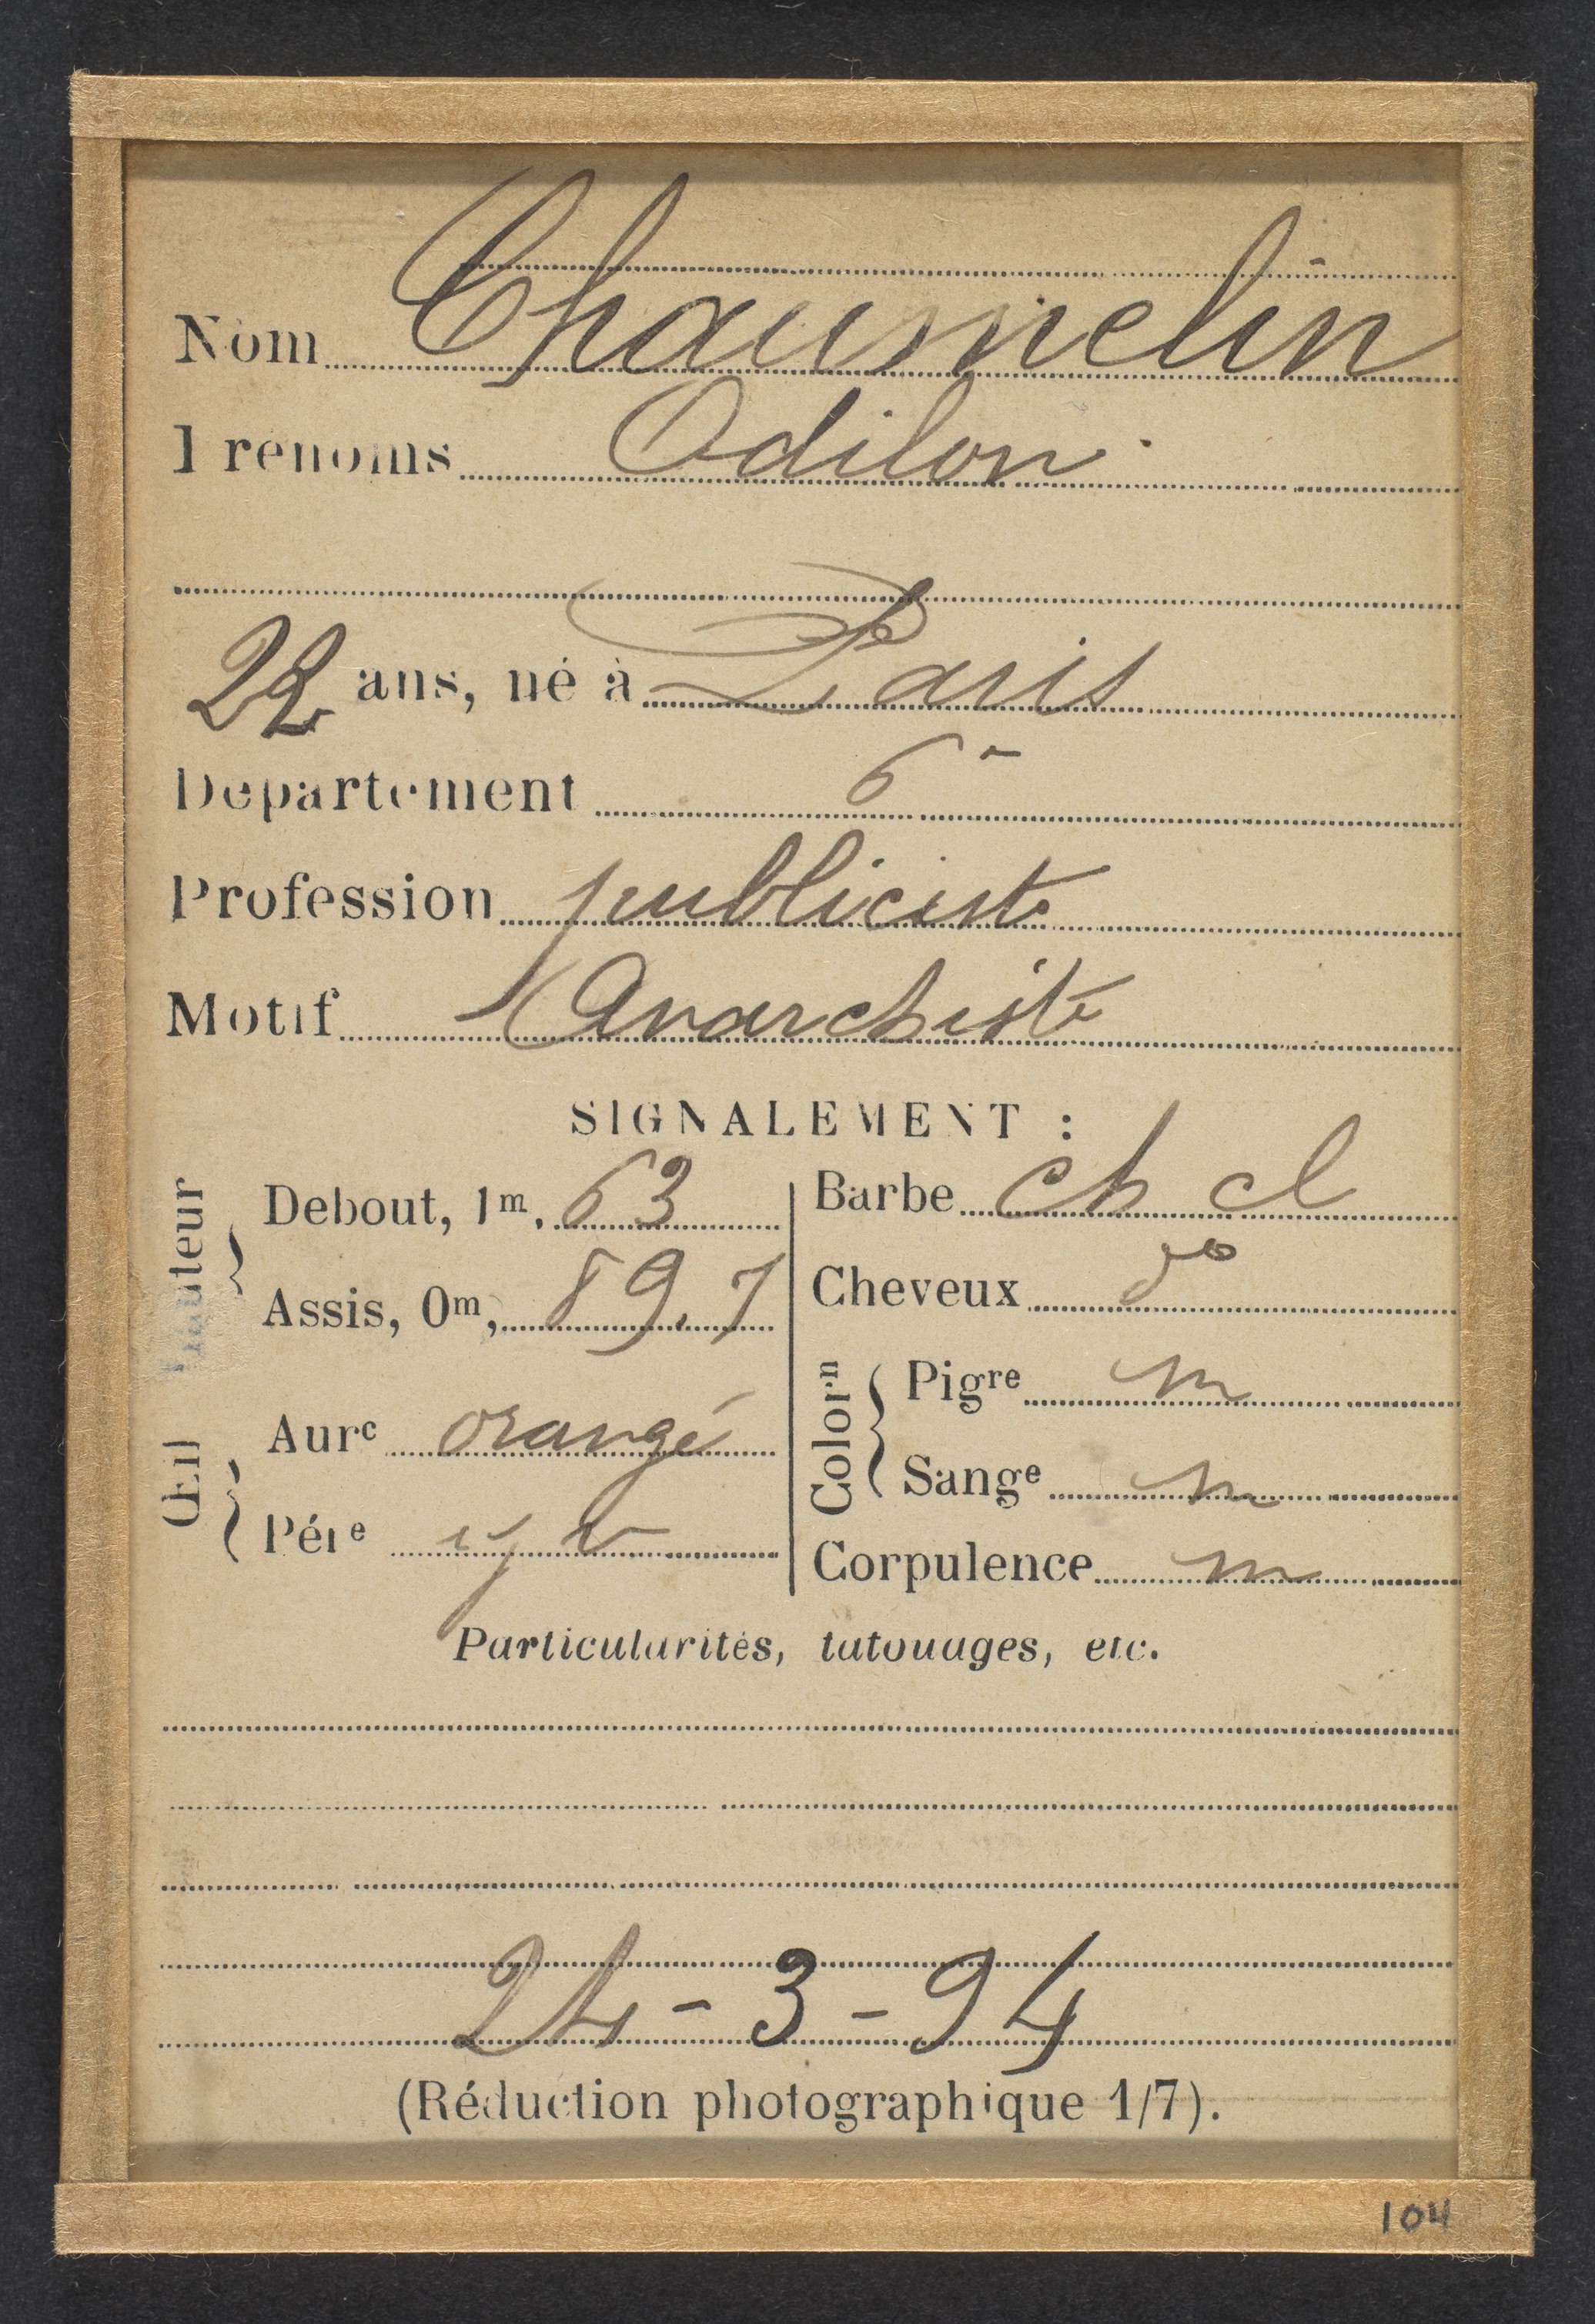 Nom Chaumelin
Prénoms Odilon
22 ans, né à Paris
Département 6e
Profession publiciste
Motif Anarchiste
SIGNALEMENT :
Hauteur
Debout, 1m, 63
Assis, 0m, 89.7
Œil
Aure orangé
Pére v
Barbe ch cl
Cheveux do
Colorn
Pigre m
Sange m
Corpulence m
Particularités, tatouages, etc.
24-3-94
(Réduction photographique 1/7).
104